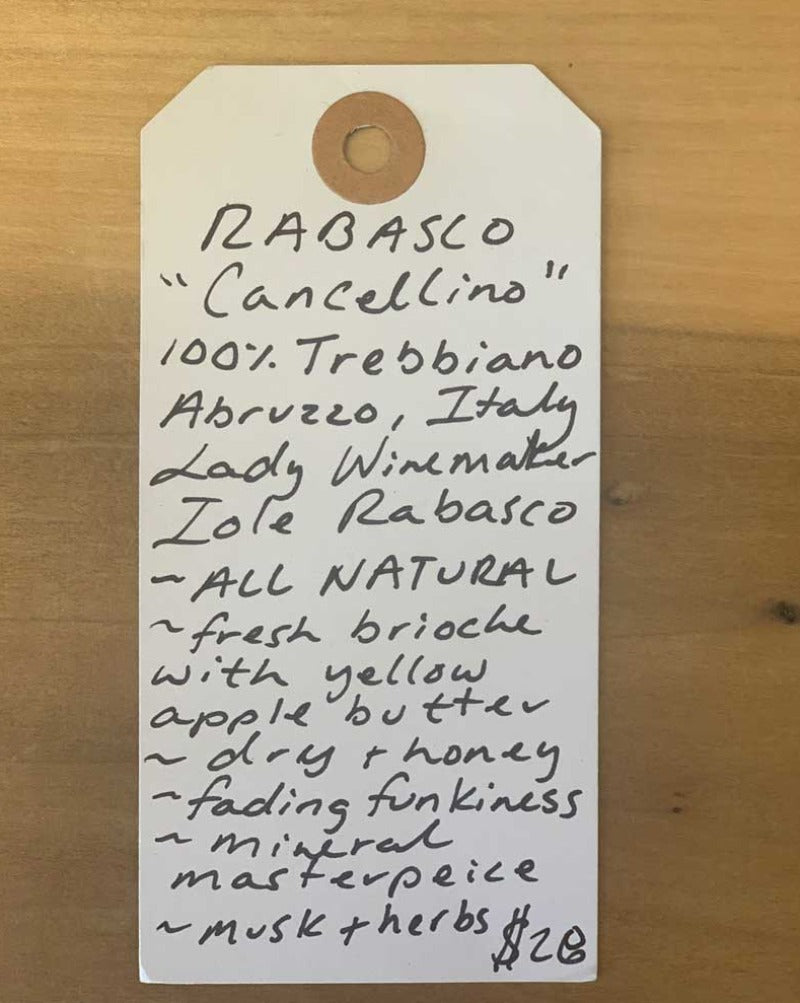 RABASCO
"Cancellino"
100% Trebbiano
Abruzzo, Italy
Lady Winemaker
Iole Rabasco
~ ALL NATURAL
~ fresh brioche
with yellow
apple butter
~ dry + honey
~ fading funkiness
~ mineral
masterpeice
~ musk + herbs $28